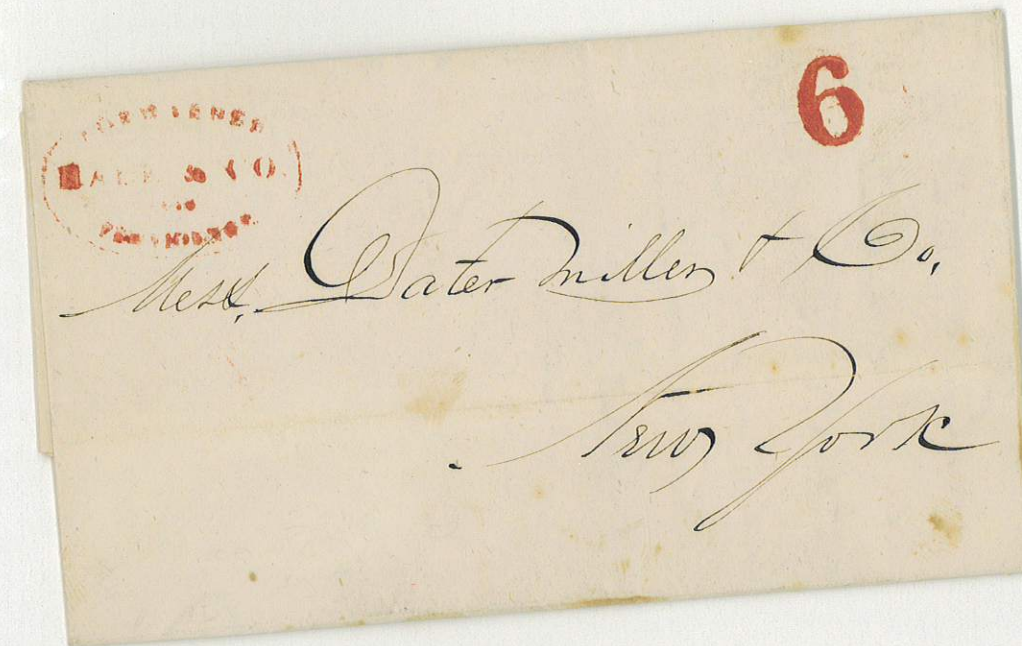 6
FORWARDED
HALE & CO.
Mess. Dater Miller & Co.
New York